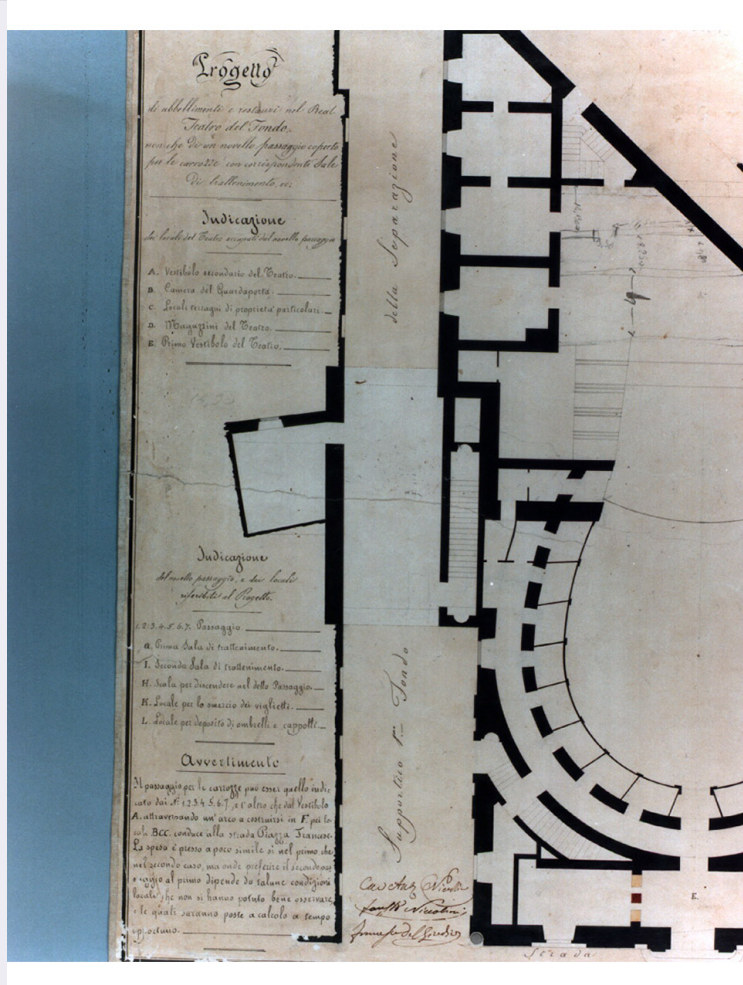 Progetto
di abbellimenti e restauri nel Real
Teatro del Fondo,
nonchè di un novello passaggio coperto
per le carrozze con corrispondenti Sale
di trattenimento ec:
Indicazione
dei locali del Teatro occupati dal novello passaggio
A. Vestibolo secondario del Teatro.
B. Camera del Guardaporta.
C. Locali terragni di proprietà particolari.
D. Magazzini del Teatro.
E. Primo Vestibolo del Teatro.
Indicazione
del novello passaggio, e dei locali
riferibili al Progetto.
1.2.3.4.5.6.7. Passaggio
G. Prima Sala di trattenimento.
I. Seconda Sala di trattenimento.
H. Scala per discendere nel detto Passaggio.
K. Locale per lo smercio dei viglietti.
L. Locale per deposito di ombrelli e cappotti.
Avvertimento
Il passaggio per le carrozze può esser quello indi-
cato dai Nⁱ 1.2.3.4.5.6.7, e l'altro che dal Vestibolo
A. attraversando un'arco a costruirsi in F. per lo
cale BCC. conduce alla strada Piazza Francese.
La spesa è presso a poco simile sì nel primo che
nel secondo caso, ma onde preferire il secondo
al primo dipende da talune condizioni
locali, che non si hanno potuto bene osservare,
e le quali saranno poste a calcolo a tempo
opportuno.
della Separazione
Supportico 1º Fondo
Gaetano
Fausto Niccolini
Francesco Del Giudice
E.
Strada